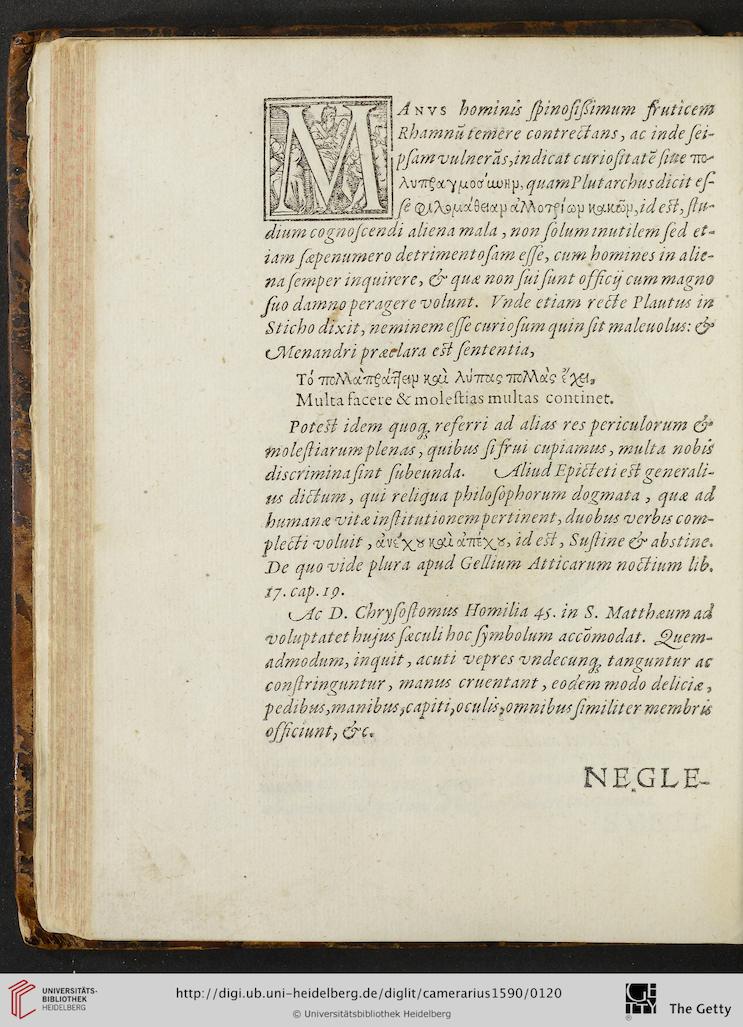 MANVS hominis ſpinoſiſsimum fruticem
Rhamnū temere contrectans, ac inde ſei-
pſam vulnerās, indicat curioſitatē ſiue πο-
λυπραγμοσύνην, quam Plutarchus dicit eſ-
ſe φιλομάθειαν ἀλλοτρίων κακῶν, id eſt, ſtu-
dium cognoſcendi aliena mala, non ſolum inutilem ſed et-
iam ſæpenumero detrimentoſam eſſe, cum homines in alie-
na ſemper inquirere, & quæ non ſui ſunt officij cum magno
ſuo damno peragere volunt. Vnde etiam recte Plautus in
Sticho dixit, neminem eſſe curioſum quin ſit maleuolus: &
Menandri præclara eſt ſententia,
Τό πολλὰ πράττειν καὶ λύπας πολλὰς ἔχει,
Multa facere & moleſtias multas continet.
Poteſt idem quoq; referri ad alias res periculorum &
moleſtiarum plenas, quibus ſi frui cupiamus, multa nobis
discrimina ſint ſubeunda. Aliud Epicteti eſt generali-
us dictum, qui reliqua philoſophorum dogmata, quæ ad
humanæ vitæ inſtitutionem pertinent, duobus verbis com-
plecti voluit, ἀνέχου καὶ ἀπέχου, id eſt, Suſtine & abstine.
De quo vide plura apud Gellium Atticarum noctium lib.
17. cap. 19.
Ac D. Chryſoſtomus Homilia 45. in S. Matthæum ad
voluptatet hujus ſæculi hoc ſymbolum accōmodat. Quem-
admodum, inquit, acuti vepres vndecunq; tanguntur ac
conſtringuntur, manus cruentant, eodem modo deliciæ,
pedibus, manibus, capiti, oculis, omnibus ſimiliter membris
officiunt, &c.
NEGLE-
UNIVERSITÄTS-
BIBLIOTHEK
HEIDELBERG
http://digi.ub.uni-heidelberg.de/diglit/camerarius1590/0120
© Universitätsbibliothek Heidelberg
GETTY
The Getty